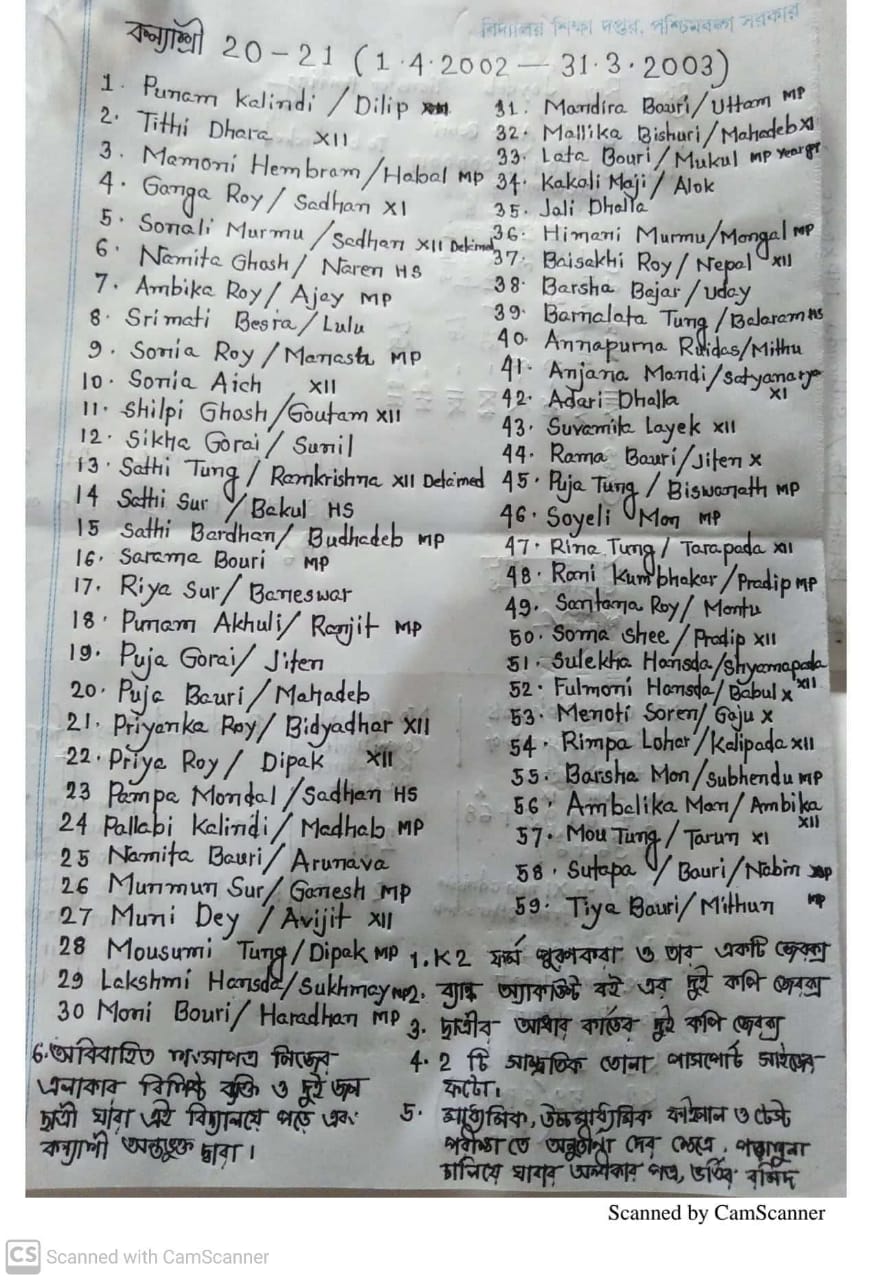 বিদ্যালয় শিক্ষা দপ্তর, পশ্চিমবঙ্গ সরকার
কন্যাশ্রী 20-21 (1.4.2002 — 31.3.2003)
1. Punam Kalindi / Dilip
2. Tithi Dhara XII
3. Mamoni Hembram / Habal MP
4. Ganga Roy / Sadhan XI
5. Sonali Murmu / Sadhan XII Detained
6. Namita Ghosh / Naren HS
7. Ambika Roy / Ajay MP
8. Srimati Besra / Lulu
9. Sonia Roy / Manasa MP
10. Sonia Aich XII
11. Shilpi Ghosh / Goutam XII
12. Sikha Gorai / Sunil
13. Sathi Tung / Ramkrishna XII Detained
14 Sathi Sur / Bakul HS
15 Sathi Bardhan / Budhadeb MP
16. Sarama Bouri MP
17. Riya Sur / Baneswar
18. Punam Akhuli / Ranjit MP
19. Puja Gorai / Jiten
20. Puja Bauri / Mahadeb
21. Priyanka Roy / Bidyadhar XII
22. Priya Roy / Dipak XII
23 Pampa Mondal / Sadhan HS
24 Pallabi Kalindi / Madhab MP
25 Namita Bauri / Arunava
26 Munmun Sur / Ganesh MP
27 Muni Dey / Avijit XII
28 Mousumi Tung / Dipak MP
29 Lakshmi Hansda / Sukhmay MP
30 Moni Bouri / Haradhan MP
31. Mandira Bauri / Uttam MP
32. Mallika Bishuri / Mahadeb XI
33. Lata Bouri / Mukul MP
34. Kakali Maji / Alok
35. Jali Dhalla
36. Himani Murmu / Mongal MP
37. Baisakhi Roy / Nepal XII
38. Barsha Bajar / Uday
39. Barnalata Tung / Balaram HS
40. Annapurna Ruidas / Mithu
41. Anjana Mandi / Satyanarya
42. Adari Dhalla XI
43. Suvamita Layek XII
44. Rama Bauri / Jiten X
45. Puja Tung / Biswanath MP
46. Soyeli Mon MP
47. Rina Tung / Tarapada XII
48. Rani Kumbhakar / Pradip MP
49. Santana Roy / Montu
50. Soma Shee / Pradip XII
51. Sulekha Hansda / Shyamapada XII
52. Fulmoni Hansda / Babul X
53. Menoti Soren / Gaju X
54. Rimpa Lohar / Kalipada XII
55. Barsha Mon / Subhendu MP
56. Ambalika Man / Ambika XII
57. Mou Tung / Tarun XI
58. Sutapa Bauri / Nabin MP
59. Tiya Bauri / Mithun MP
1. K2 ফর্ম পুরণকরা ও তার একটি জেরক্স
2. ব্যাঙ্ক অ্যাকাউন্ট বই এর দুই কপি জেরক্স
3. ছাত্রীর আধার কার্ডের দুই কপি জেরক্স
4. 2 টি সাম্প্রতিক তোলা পাসপোর্ট সাইজের
ফটো।
5. মাধ্যমিক, উচ্চমাধ্যমিক ফাইনাল ও টেস্ট
পরীক্ষা তে অনুত্তীর্ণ দের ক্ষেত্রে, পড়াশুনা
চালিয়ে যাবার অঙ্গীকার পত্র, ভর্তির রসিদ
6. অবিবাহিত শংসাপত্র নিজের
এলাকার বিশিষ্ট ব্যক্তি ও দুই জন
ছাত্রী যারা এই বিদ্যালয়ে পড়ে এবং
কন্যাশ্রী অন্তর্ভুক্ত দ্বারা।
Scanned by CamScanner
CS Scanned with CamScanner